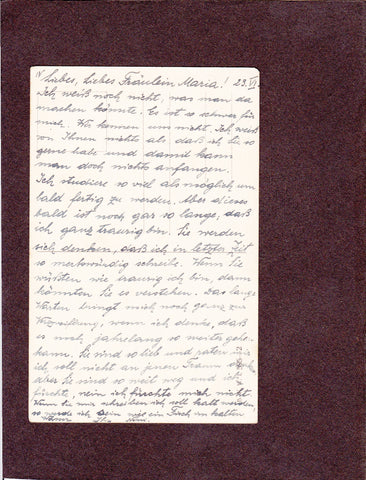 Liebes, liebes Fräulein Maria! 23. VI.
Ich weiß noch nicht, was man da
machen könnte. Es ist so schwer für
mich. Wir kennen uns nicht. Ich weiß
von Ihnen nichts als daß ich Sie so
gerne habe und damit kann
man doch nichts anfangen.
Ich studiere so viel als möglich um
bald fertig zu werden. Aber dieses
bald ist noch gar so lange, daß
ich ganz traurig bin. Sie werden
sich denken, daß ich in letzter Zeit
so merkwürdig schreibe. Wenn Sie
wüßten wie traurig ich bin, dann
könnten Sie es verstehen. Das lange
Warten bringt mich noch ganz zur
Verzweiflung, wenn ich denke, daß
es noch jahrelang so weiter gehen
kann. Sie sind so lieb und raten mir
ich soll nicht an jenen Traum denken
aber Sie sind so weit weg und ich
fürchte, nein ich fürchte mich nicht.
Wenn Sie mir schreiben ich soll kalt werden,
so werde ich sein wie ein Fisch im kalten